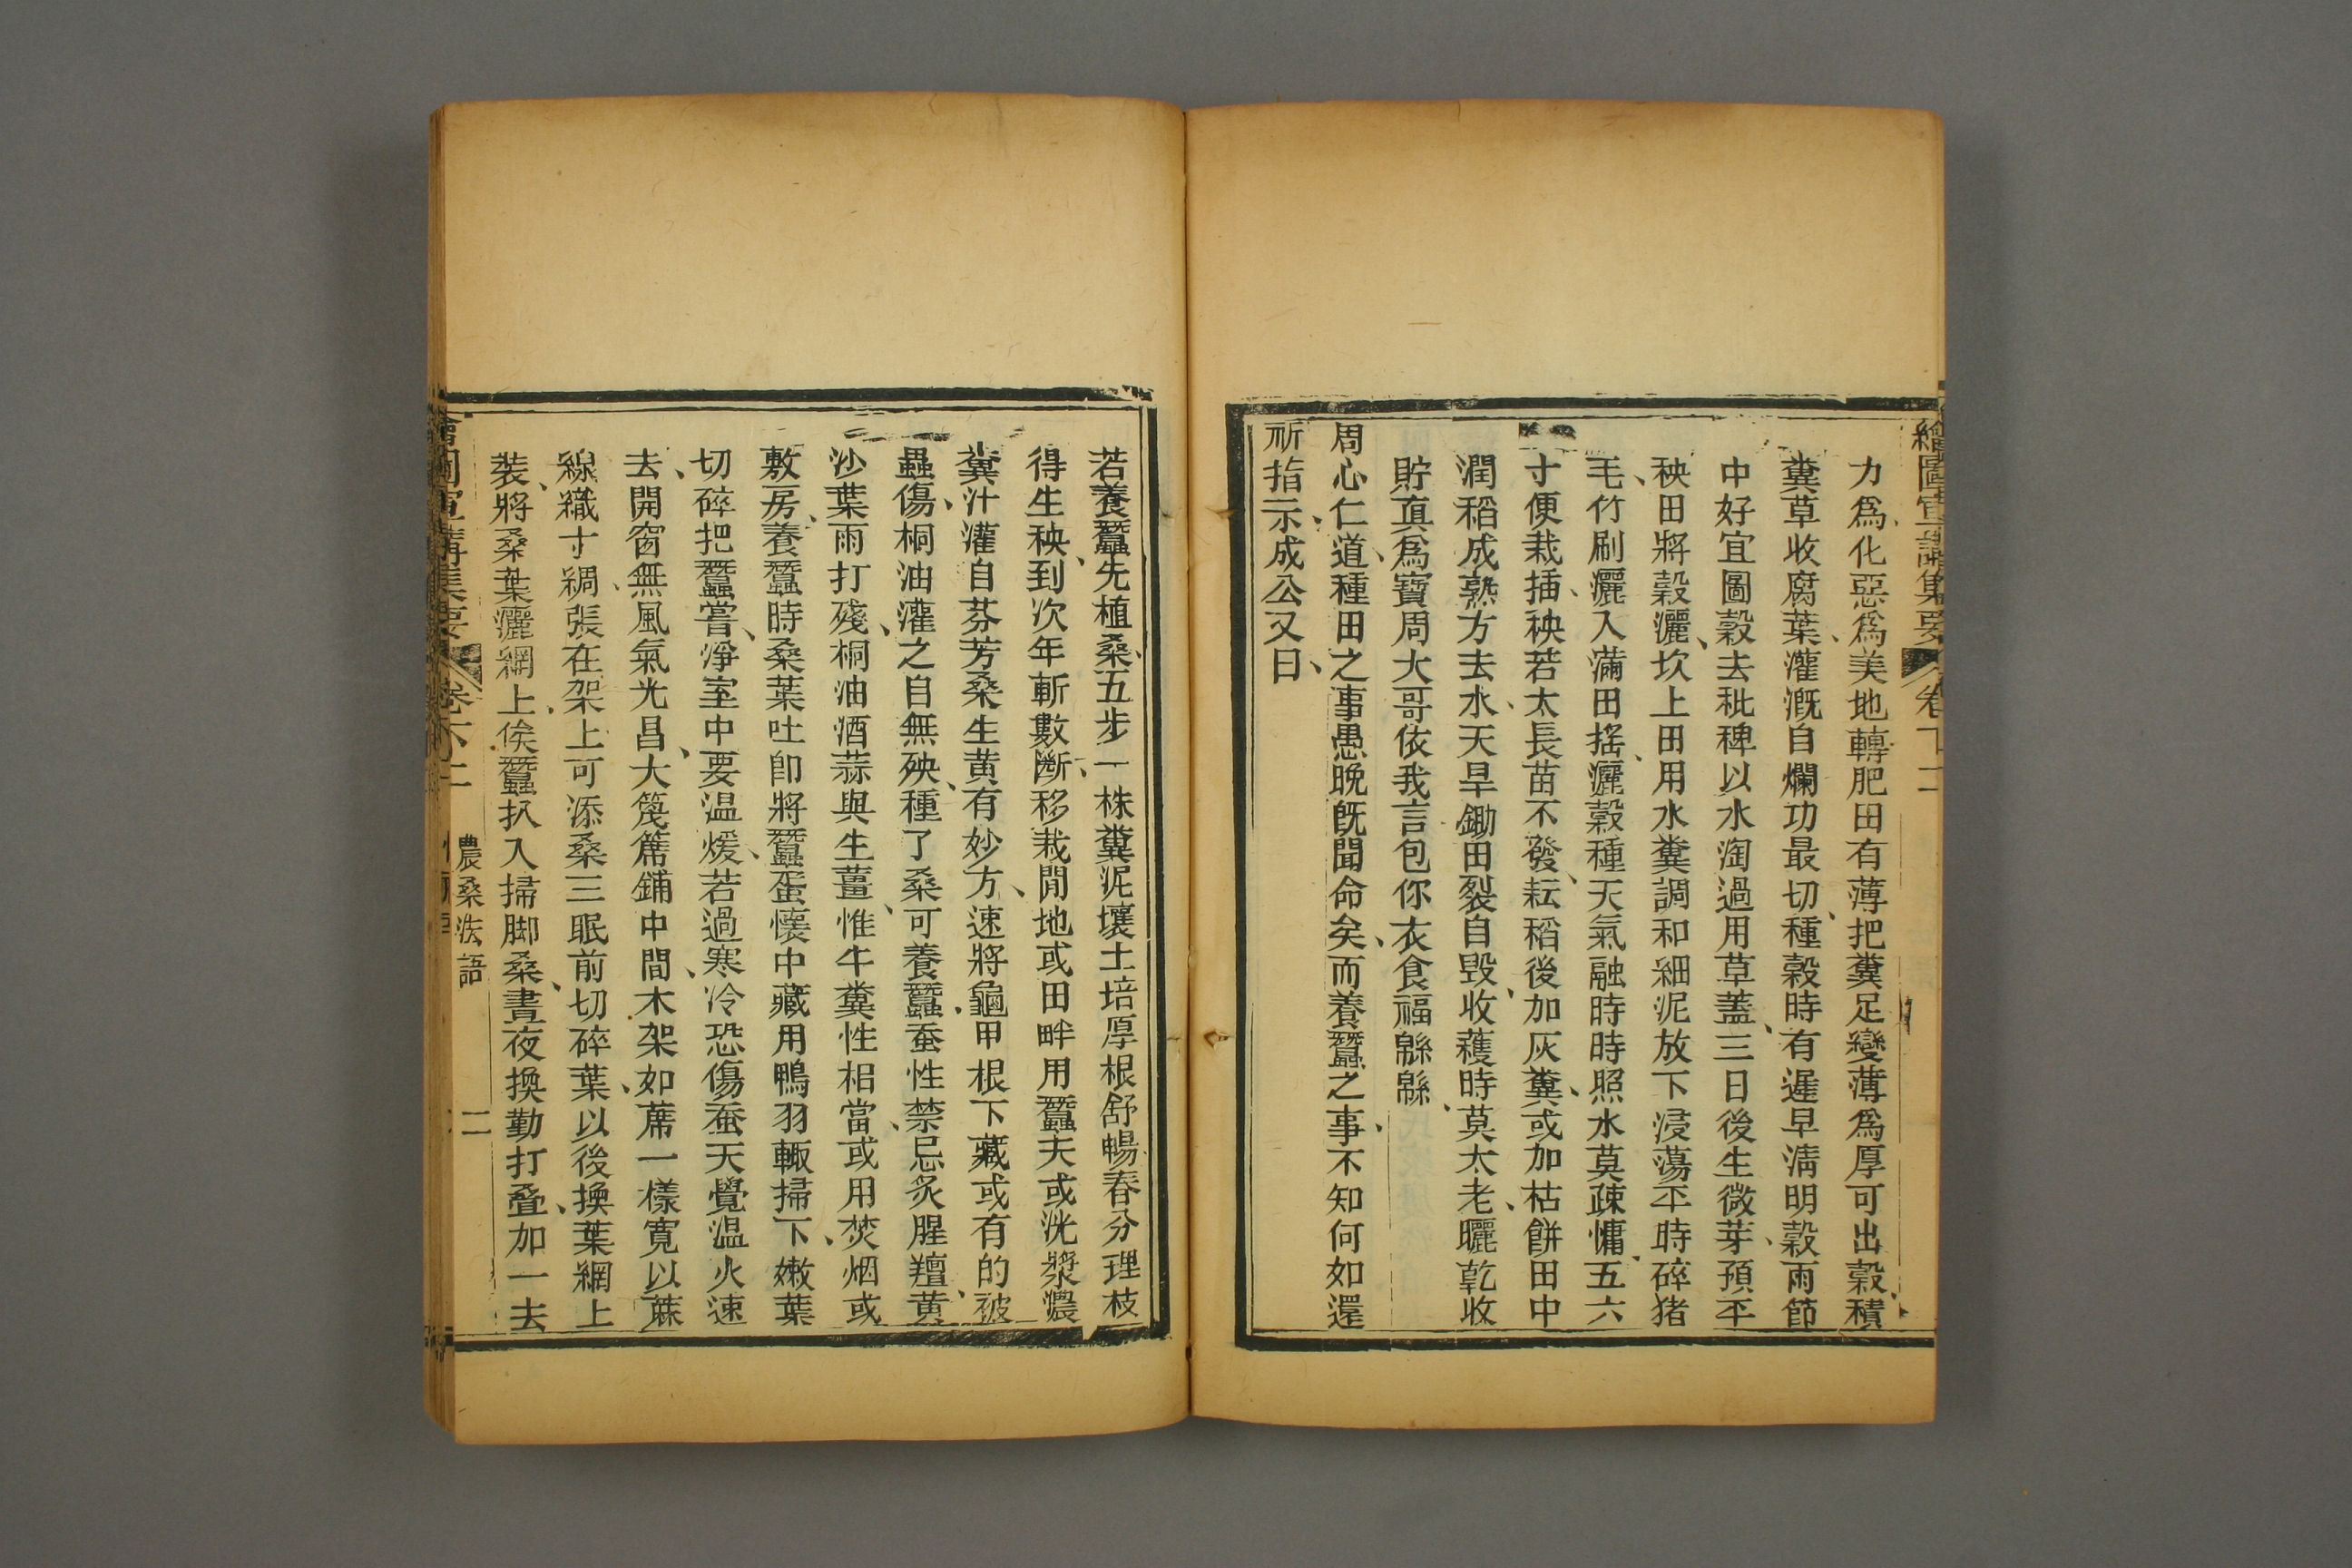 繪圖宣講集要 卷下二
力爲化惡爲美地轉肥田有薄把糞足變薄爲厚可出穀積
糞草收腐葉灌溉自爛功最切種穀時有遲早淸明穀雨節
中好宜圖穀去秕稗以水淘過用草蓋三日後生微芽預平
秧田將穀灑坎上田用水糞調和細泥放下浸蕩平時碎猪
毛竹刷灑入滿田搖灑穀種天氣融時時照水莫疎慵五六
寸便栽插秧若太長苗不發耘稻後加灰糞或加枯餅田中
潤稻成熟方去水天旱鋤田裂自毀收穫時莫太老曬乾收
貯眞爲寶周大哥依我言包你衣食福緜緜
周心仁道種田之事愚晚既聞命矣而養蠶之事不知何如還
祈指示成公又曰
若養蠶先植桑五步一株糞泥壤土培厚根舒暢春分理枝
得生秧到次年斬數斷移栽閒地或田畔用蠶夫或洸漿濃
糞汁灌自芬芳桑生黃有妙方速將龜甲根下藏或有的被
蟲傷桐油灌之自無殃種了桑可養蠶蚕性禁忌炙腥羶黃
沙葉雨打殘桐油酒蒜與生薑惟牛糞性相當或用焚烟或
敷房養蠶時桑葉吐卽將蠶蛋懷中藏用鴨羽輙掃下嫩葉
切碎把蠶嘗淨室中要温煖若過寒冷恐傷蚕天覺温火速
去開窗無風氣光昌大篾簾鋪中間木架如蓆一樣寬以蔴
線織寸網張在架上可添桑三眠前切碎葉以後換葉網上
裝將桑葉灑網上俟蠶扒入掃脚桑晝夜換勤打叠加一去
繪圖宣講集要 卷下二 農桑法語 二